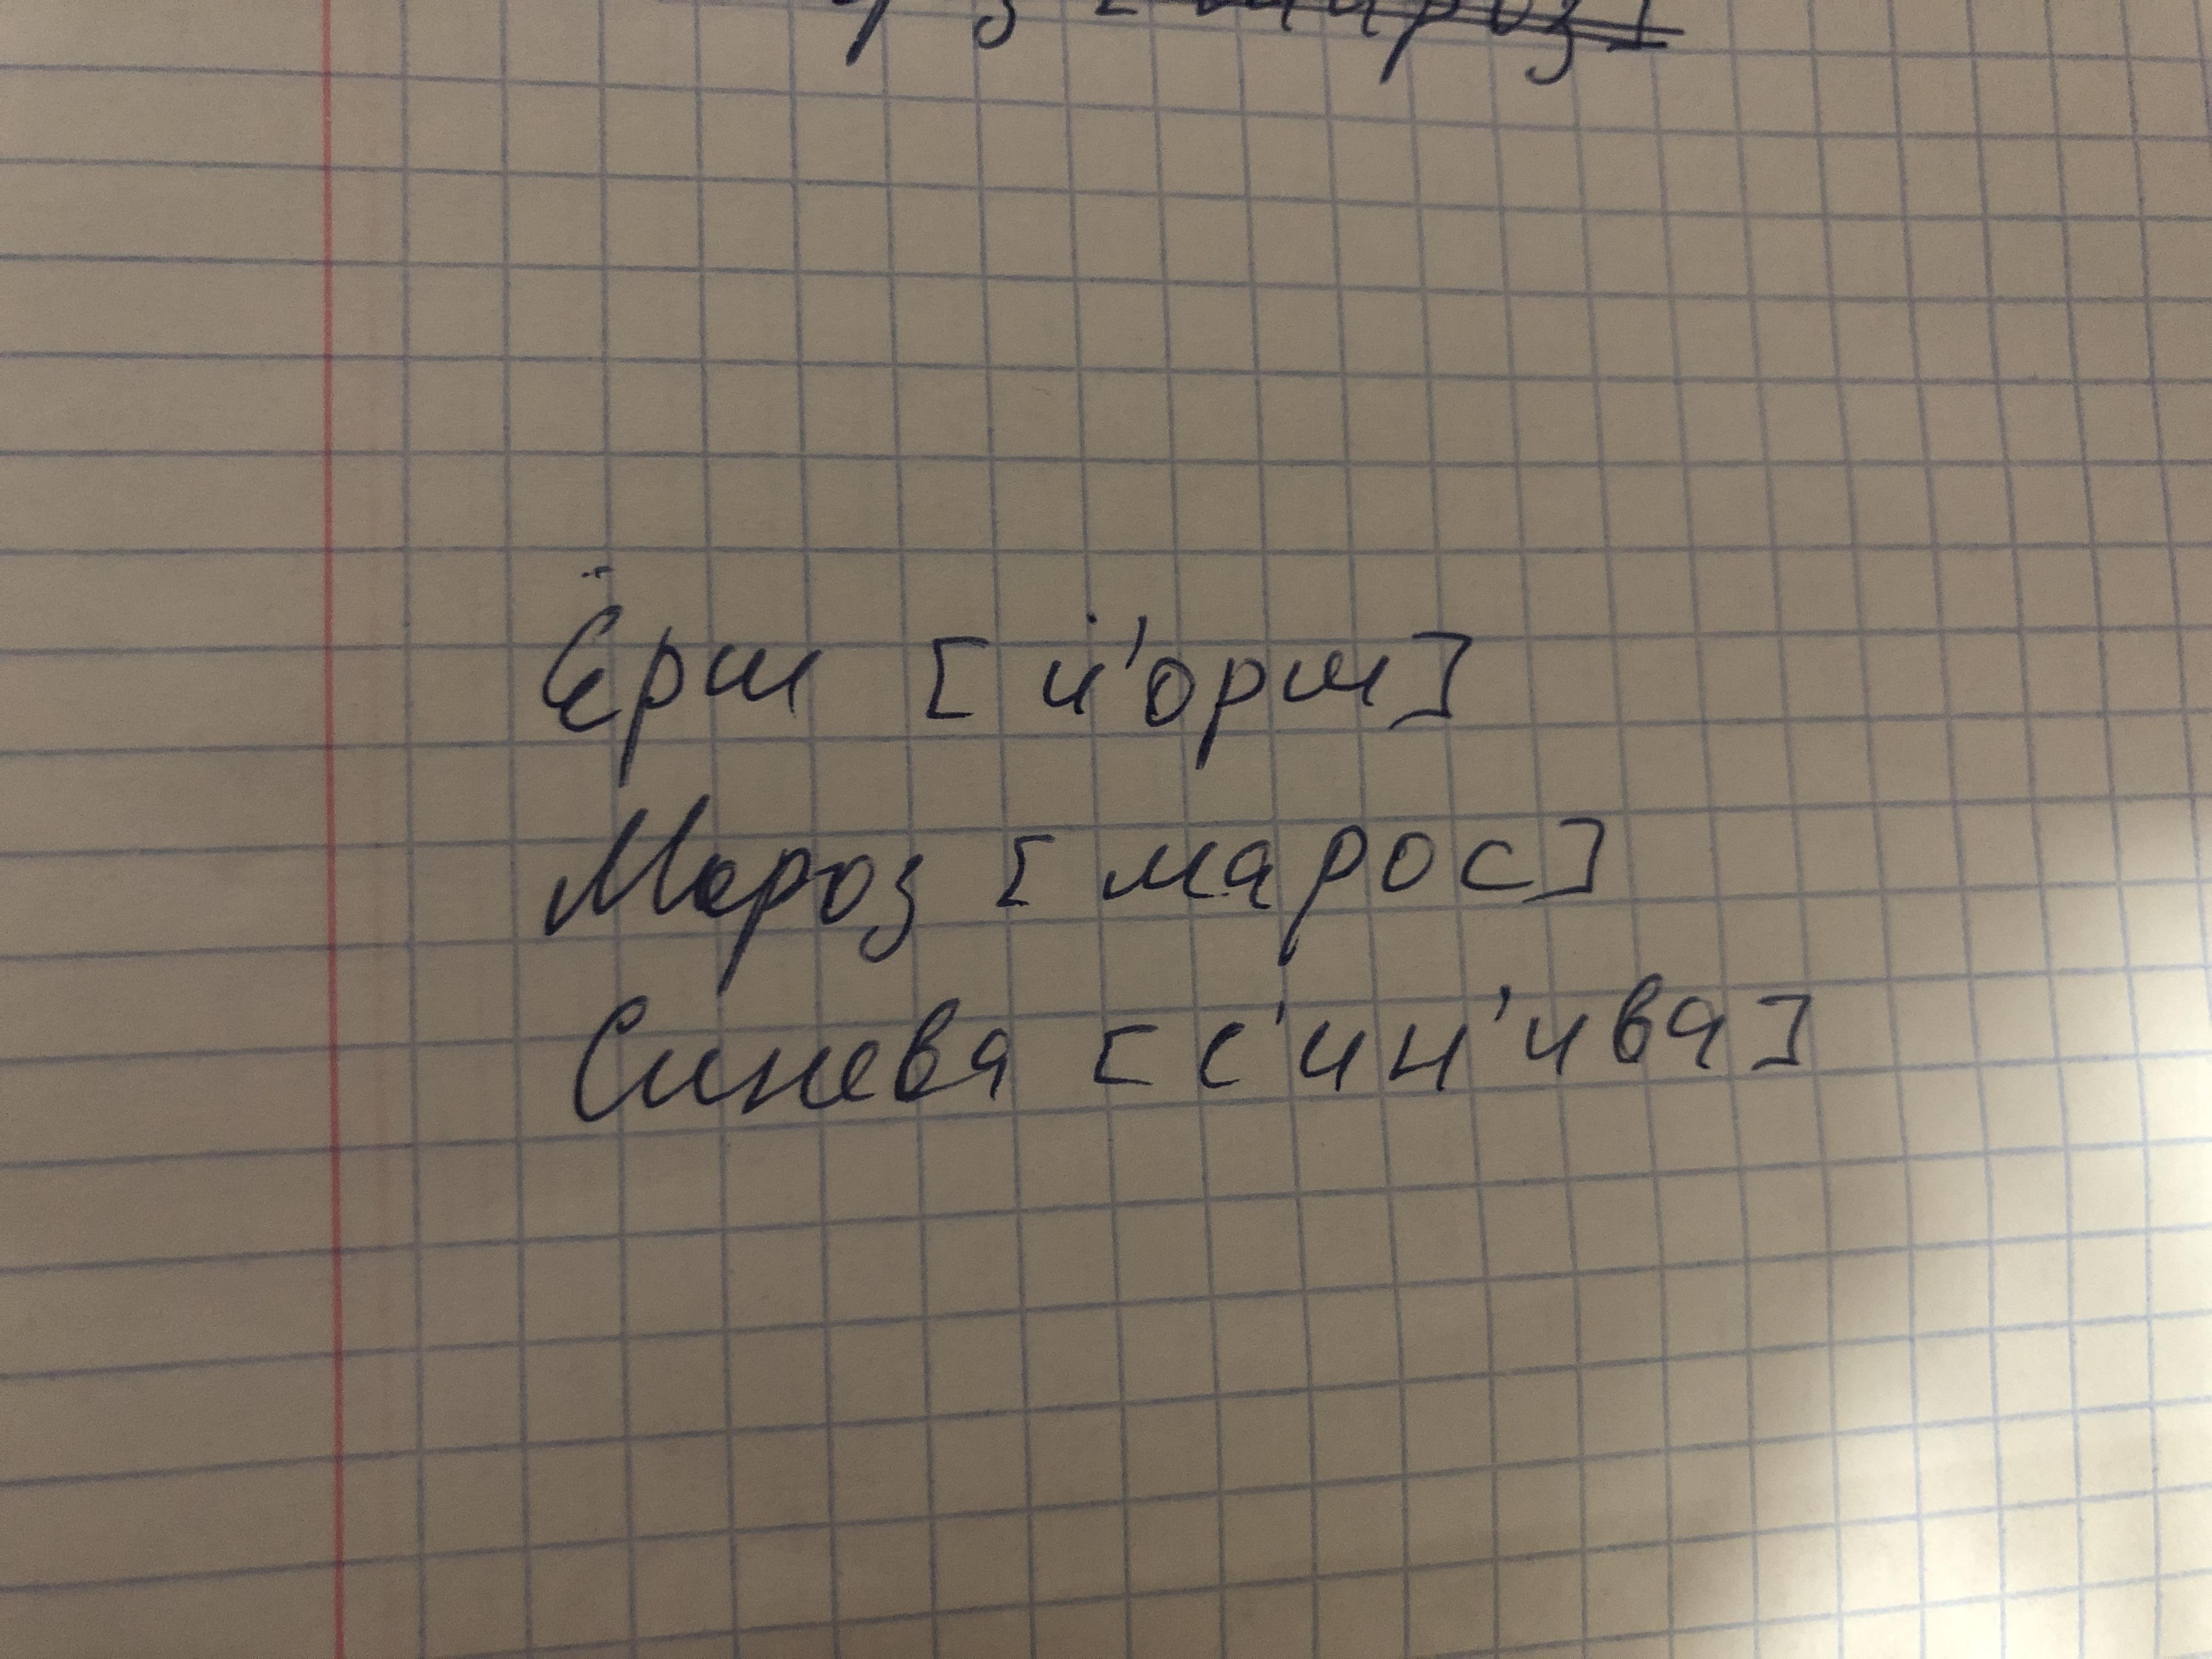 Ёрш [й'орш]
Мороз [марос]
Синева [с'ин'ива]